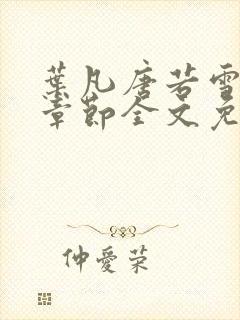 葉凡唐若雪
章節全文免
仲愛荣